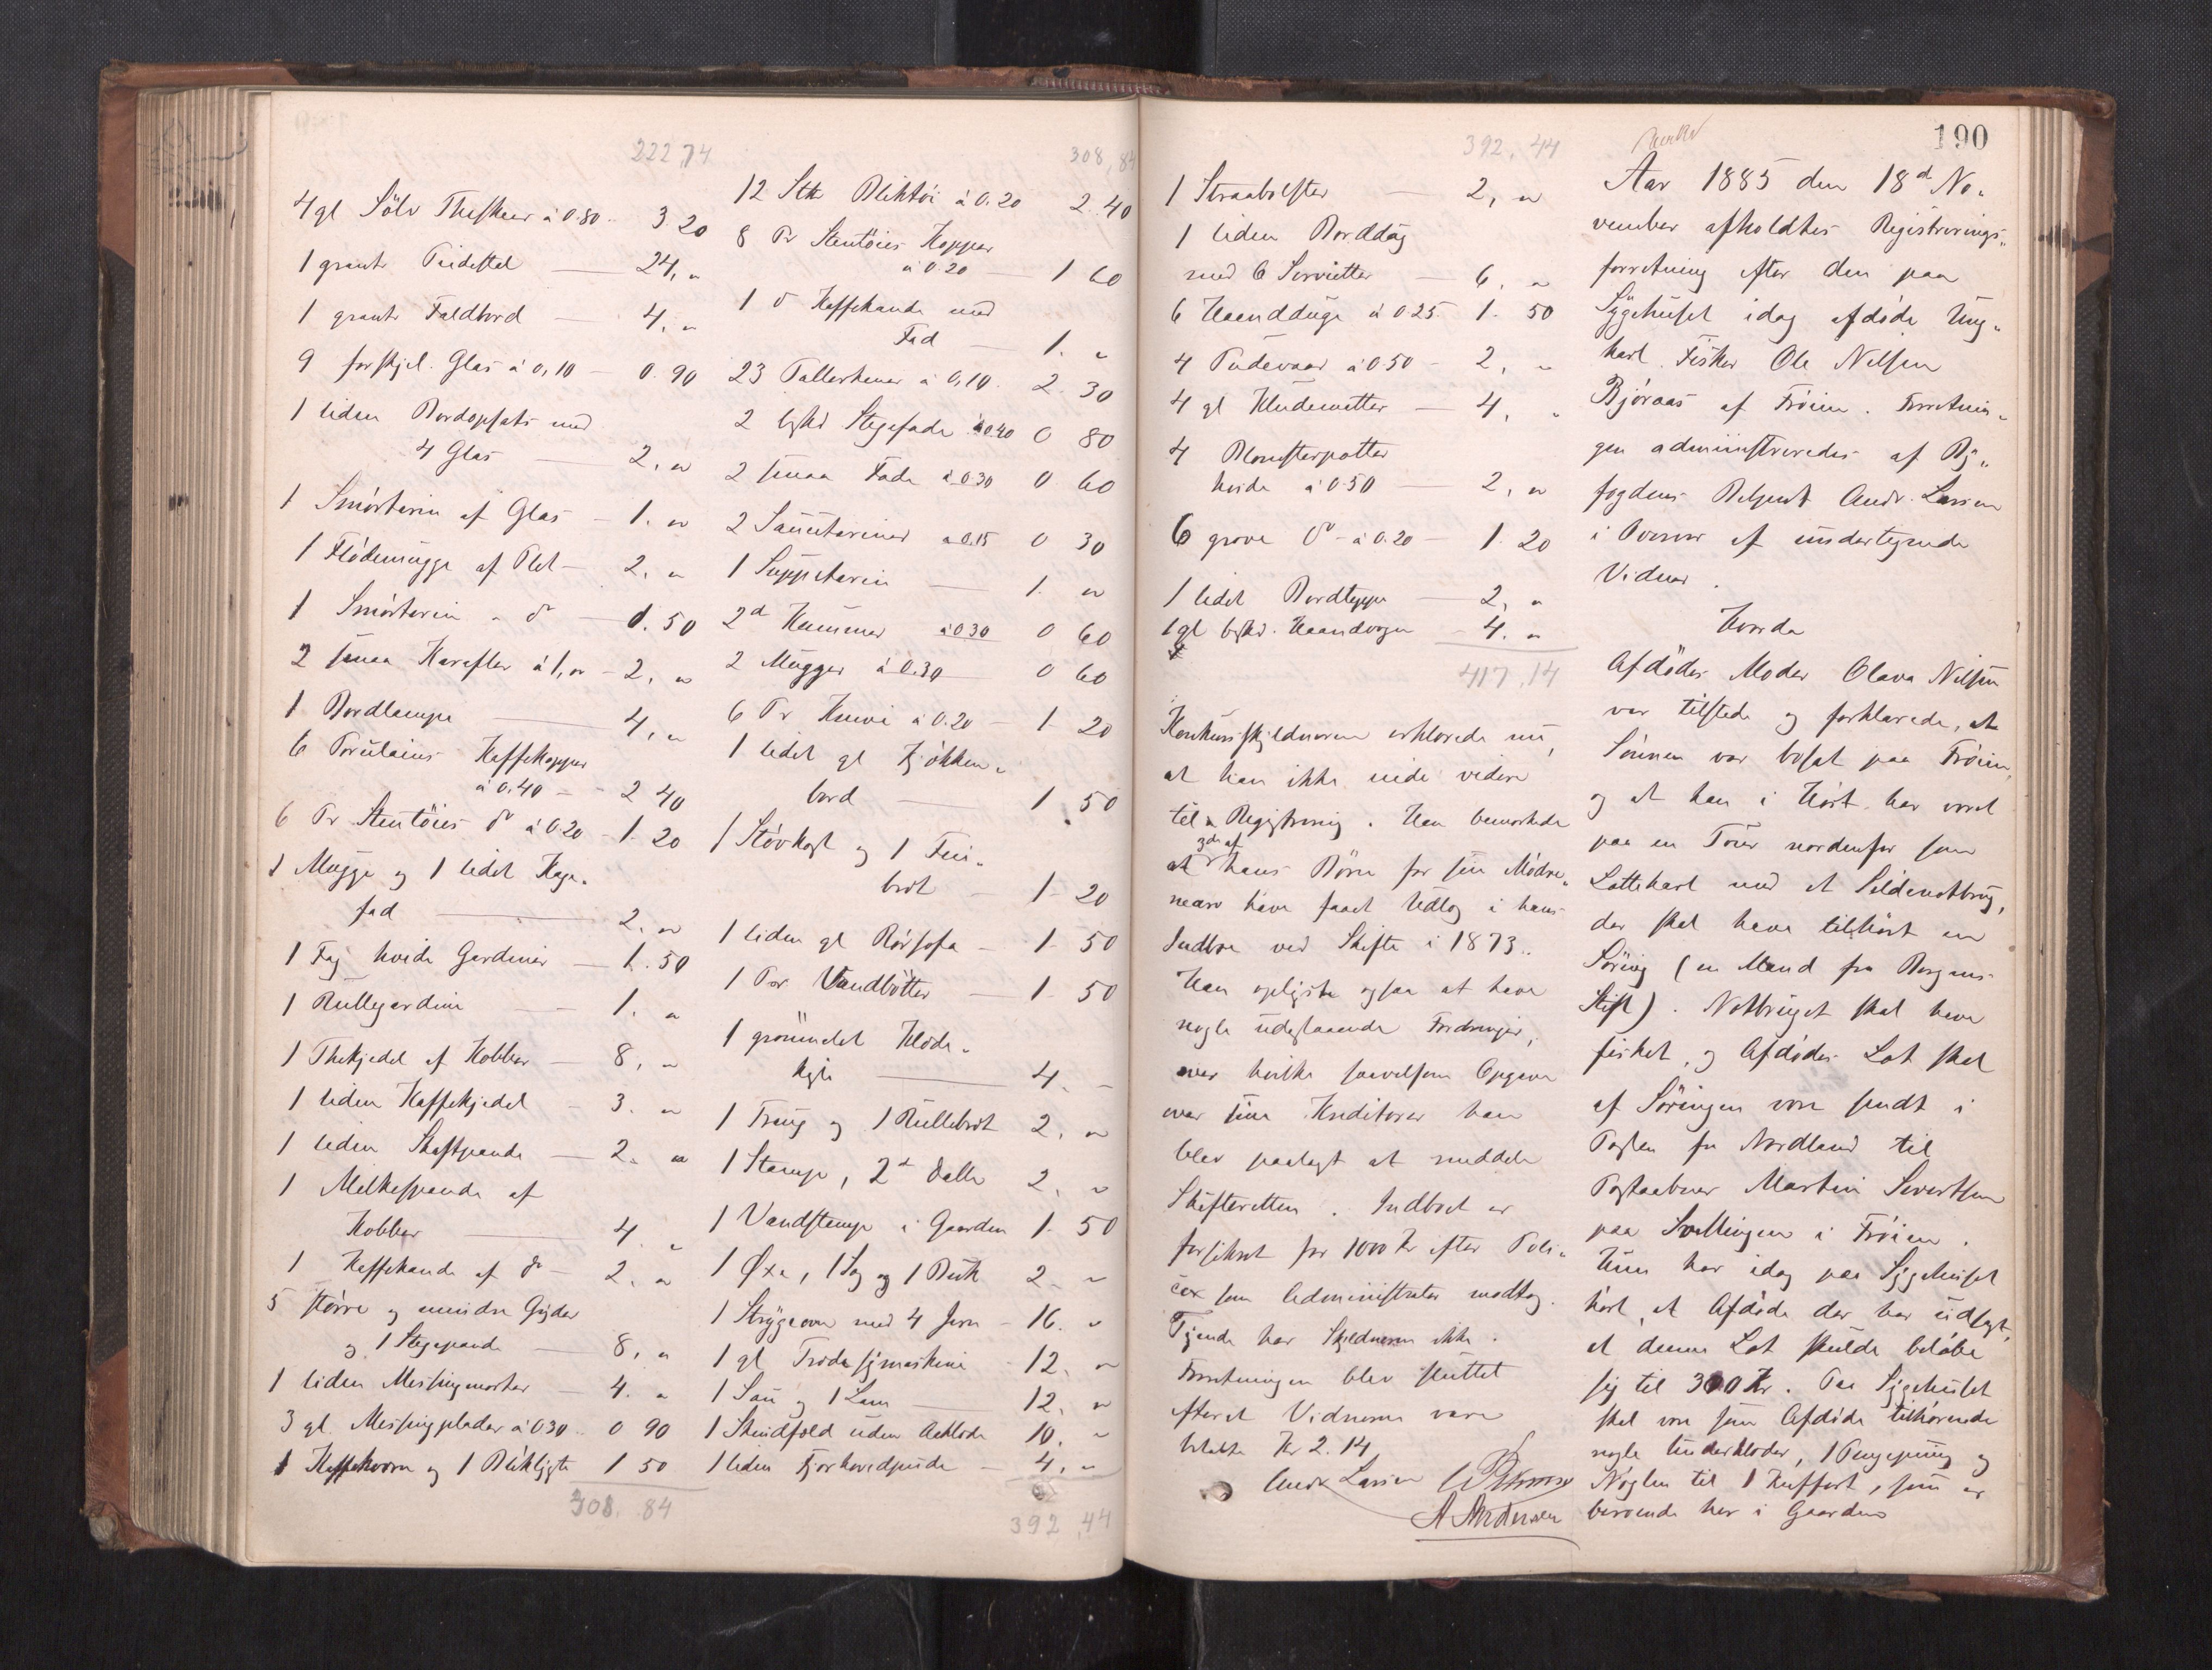 222,74
4 gl Sölv Theskeer à 0.80 3 20
1 grønt Taidestel 24, "
1 grønt Foldbord 4, "
9 forskjel. Glas à 0,10 0. 90
1 liden Bordopsats med
4 Glas 2, "
1 Smörterin af Glas 1. "
1 Flödemugge af Plet 2, "
1 Smörterin " do 1.50
2 smaa Karafler à 1, " 2, "
1 Bordlampe 4, "
6 Porcelains Kaffekopper
à 0.40 2 40
6 Pr Stentöies do à 0.20 1. 20
1 Mugge og 1 lidet Kage-
fad 2, "
1 Fag hvide Gardiner 1.50
1 Rullegardin 1. "
1 Thekjedel af Kobber 8, "
1 liden Kaffekjedel 3. "
1 liden Skaftpande 2. "
1 Melkespande af
Kobber 4. "
1 Kaffekande af do 2. "
5 större og mindre Gryder
og 1 Stegepande 8, "
1 liden Messingmorter 4. "
3 gl. Messingplader à 0.30 0 90
1 Kaffekvern og 1 Bliklygte 1 50
308. 84
308,84
12 Stk Bliktöi à 0.20 2. 40
8 Pr Stentöies Kopper
à 0.20 1 60
1 do Kaffekande med
Fad 1. "
23 Tallerkener à 0,10 2. 30
2 Stegefade à 0.40 0 80
2 smaa Fade à 0.30 0 60
2 Sausteriner à 0.15 0 30
1 Suppeterin 1. "
2 Kummer à 0.30 0 60
2 Mugger à 0.30 0 60
6 Pr Knive à 0.20 1. 20
1 lidet gl Kjökken-
bord 1. 50
1 Stövkost og 1 Fei-
bret 1. 20
1 liden gl Rörsofa 1. 50
1 Par Vandbötter 1. 50
1 grönmalet Klæde-
4. "
1 Traug og 1 Rullebret 2, "
1 Stampe, 2 Baller 2, "
1 Vandstampe i Gaarden 1. 50
1 Øxe, 1 Sag og 1 2. "
1 Strygeovn med 4 Jern 16. "
1 gl Træde symaskine 12. "
1 Sau og 1 Lam 12. "
1 Skindfeld uden Aaklæde 10. "
1 liden Fjærhovedpude 4, "
392,44
392,44
1 Straabolster 2, "
1 liden Borddug
med 6 Servietter 6, "
6 Haandduge à 0.25 1. 50
4 Pudevaar à 0.50 2, "
4 gl 4, "
4 Blomsterpotter
hvide à 0.50 2, "
6 grove do à 0.20 1. 20
1 lidet Bordteppe 2, "
1 gl Haandvogn 4. "
417,14
Konkursskyldneren erklærede nu,
at han ikke eiede videre
til Registrering. Han bemærkede
at 3de af hans Börn for sin Mödre-
nearv have faaet Udlæg i hans
Indbo ved Skifte i 1873.
Han oplyste ogsaa at have
nogle udestaaende Fordringer,
over hvilke saavelsom Opgave
over sine Kreditorer han
blev paalagt at meddele
Skifteretten. Indboet er
forsikret for 1000 Kr efter Poli-
ce som Administrator modtog.
Tjenere har Skyldneren ikke.
Forretningen blev sluttet
efterat Vidnerne vare
betalte Kr 2.14
Andr Larsen
A Andersen
190
Aar 1885 den 18d No-
vember afholdtes Registrerings-
forretning efter den paa
Sygehuset idag afdöde Ung-
karl Fisker Ole Nilsen
Björaas af Fröien. Forretnin-
gen administreredes af By-
fogdens Betjent Andr. Larsen
i Overvær af undertegnede
Vidner.
Hvorda
Afdödes Moder Olava Nilsen
var tilstede og forklarede, at
Sönnen var bosat paa Fröien,
og at han i Höst har været
paa en Tour nordenfor som
Lottekarl med et Sildenotbrug,
der skal have tilhört en
Söring (en Mand fra Bergens
Stift). Notbruget skal have
fisket, og Afdödes Lot skal
af Söringen være sendt i
Posten fra Nordland til
Postaabner Martin Sivertsen
paa Svellingen i Fröien.
Hun har idag paa Sygehuset
hört, at Afdöde der har udsagt,
at denne Lot skulde belöbe
sig til 300 Kr. Paa Sygehuset
skal være som Afdöde tilhörende
nogle Underklæder, 1 Pengepung og
Nöglen til 1 Kuffert, som er
beroende her i Gaarden